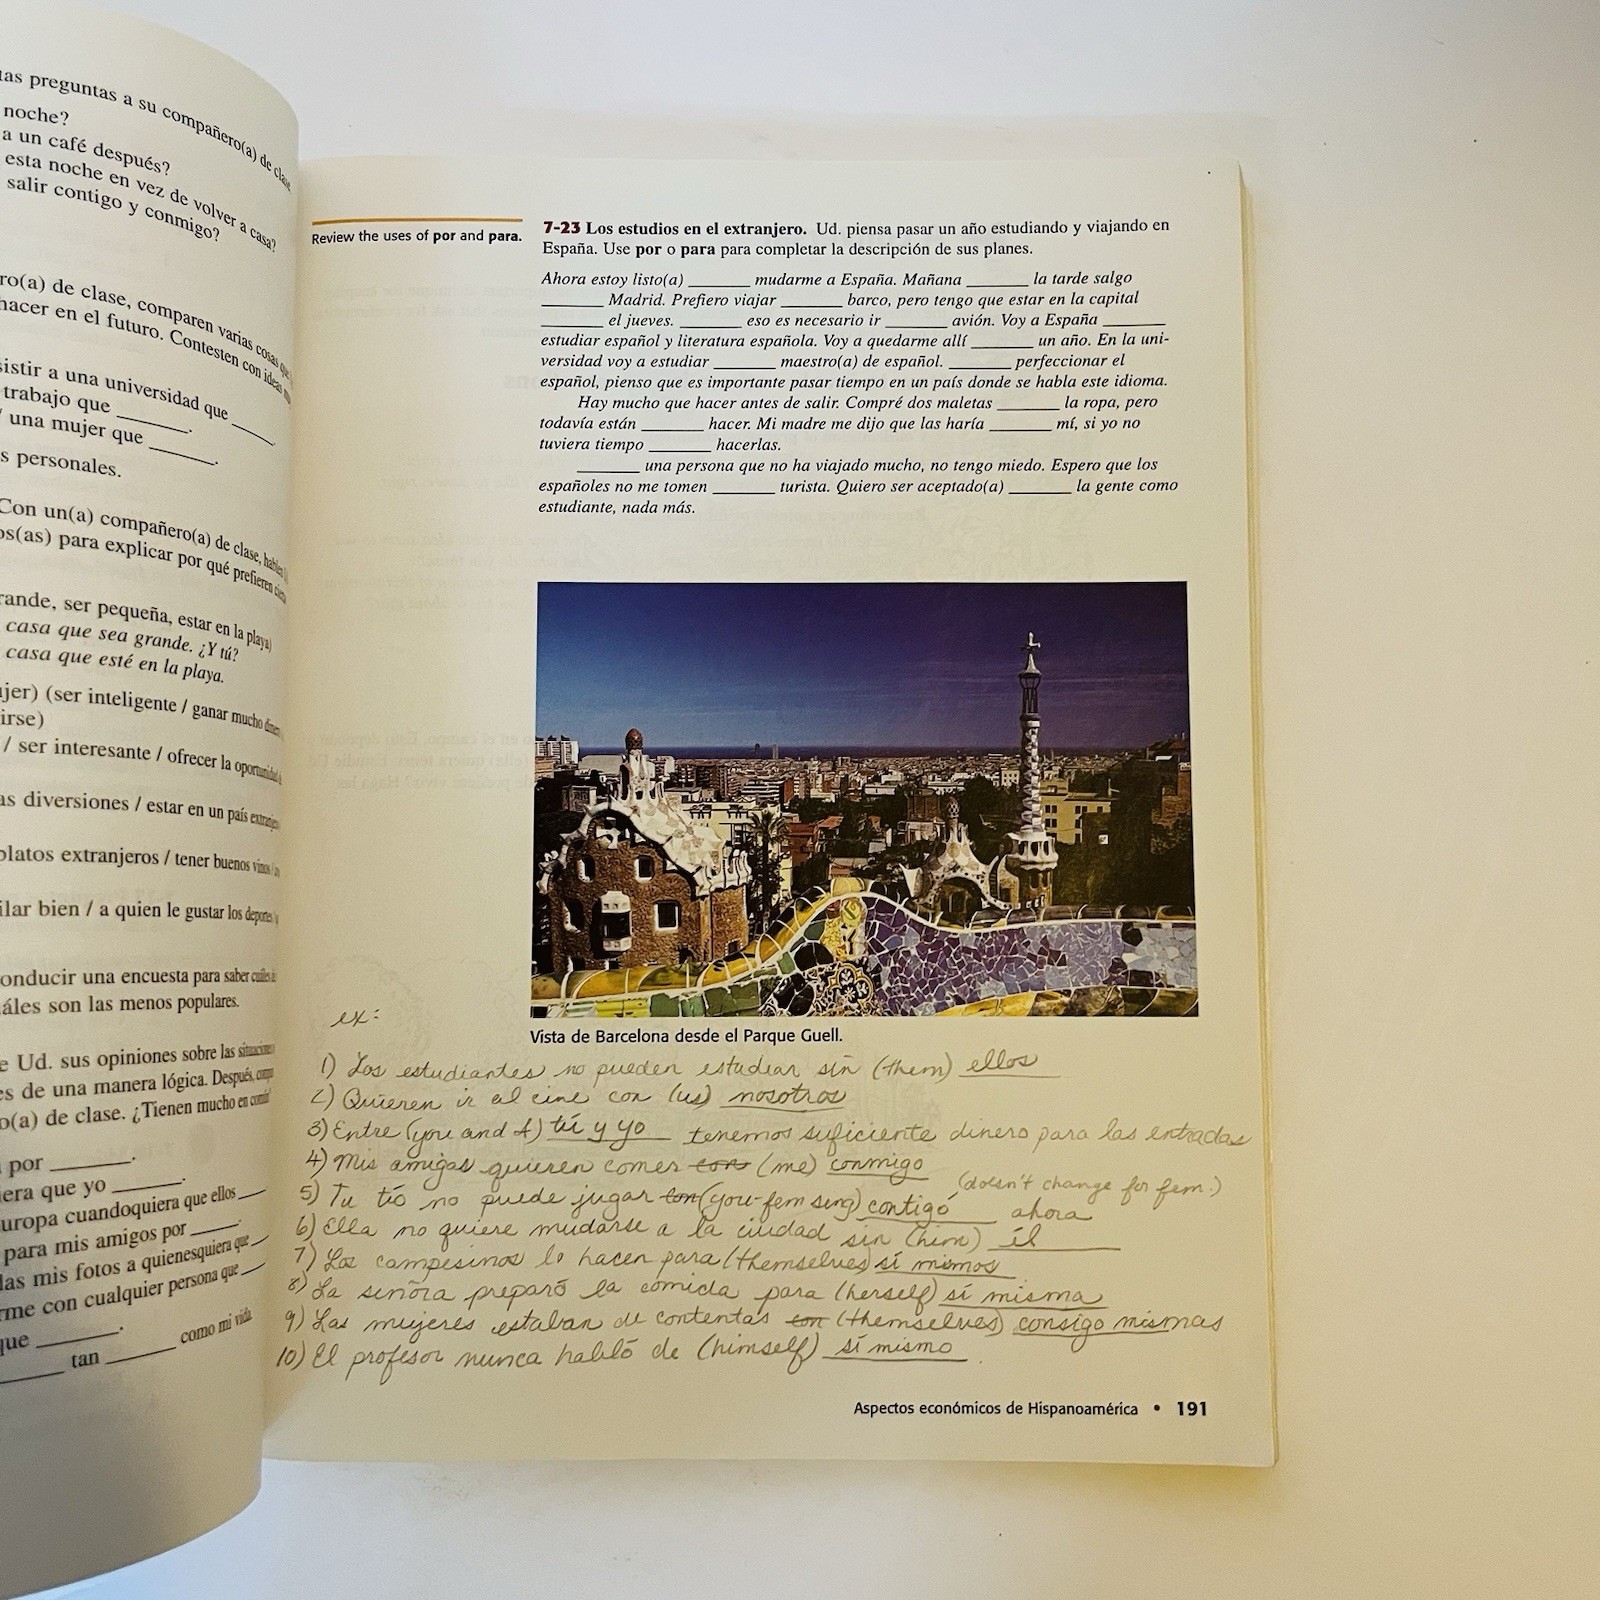 las preguntas a su compañero(a) de clase
noche?
a un café después?
esta noche en vez de volver a casa?
salir contigo y conmigo?
ro(a) de clase, comparen varias cosas que
hacer en el futuro. Contesten con ideas
sistir a una universidad que ______.
trabajo que ______.
/ una mujer que ______.
s personales.
Con un(a) compañero(a) de clase, hablen
os(as) para explicar por qué prefieren
rande, ser pequeña, estar en la playa)
casa que sea grande. ¿Y tú?
casa que esté en la playa.
ujer) (ser inteligente / ganar mucho
irse)
/ ser interesante / ofrecer la oportunidad
as diversiones / estar en un país extranjero
platos extranjeros / tener buenos vinos /
ilar bien / a quien le gustar los deportes
onducir una encuesta para saber cuáles
áles son las menos populares.
e Ud. sus opiniones sobre las situaciones
es de una manera lógica. Después,
o(a) de clase. ¿Tienen mucho en común?
por ______.
iera que yo ______.
uropa cuandoquiera que ellos ___
para mis amigos por ______.
las mis fotos a quienesquiera que ___
rme con cualquier persona que ___
que ______.
______ tan ______ como mi vida
Review the uses of por and para.
7-23 Los estudios en el extranjero. Ud. piensa pasar un año estudiando y viajando en
España. Use por o para para completar la descripción de sus planes.
Ahora estoy listo(a) ______ mudarme a España. Mañana ______ la tarde salgo
______ Madrid. Prefiero viajar ______ barco, pero tengo que estar en la capital
______ el jueves. ______ eso es necesario ir ______ avión. Voy a España ______
estudiar español y literatura española. Voy a quedarme allí ______ un año. En la uni-
versidad voy a estudiar ______ maestro(a) de español. ______ perfeccionar el
español, pienso que es importante pasar tiempo en un país donde se habla este idioma.
Hay mucho que hacer antes de salir. Compré dos maletas ______ la ropa, pero
todavía están ______ hacer. Mi madre me dijo que las haría ______ mí, si yo no
tuviera tiempo ______ hacerlas.
______ una persona que no ha viajado mucho, no tengo miedo. Espero que los
españoles no me tomen ______ turista. Quiero ser aceptado(a) ______ la gente como
estudiante, nada más.
Vista de Barcelona desde el Parque Guell.
ex:
1) Los estudiantes no pueden estudiar sin (them) ellos
2) Quieren ir al cine con (us) nosotros
3) Entre (you and I) tú y yo tenemos suficiente dinero para las entradas
4) Mis amigas quieren comer con (me) conmigo
(doesn't change for fem.)
5) Tu tío no puede jugar con (you-fem sing) contigo ahora
6) Ella no quiere mudarse a la ciudad sin (him) él
7) Los campesinos lo hacen para (themselves) sí mismos
8) La señora preparó la comida para (herself) sí misma
9) Las mujeres estaban de contentas con (themselves) consigo mismas
10) El profesor nunca habló de (himself) sí mismo.
Aspectos económicos de Hispanoamérica • 191